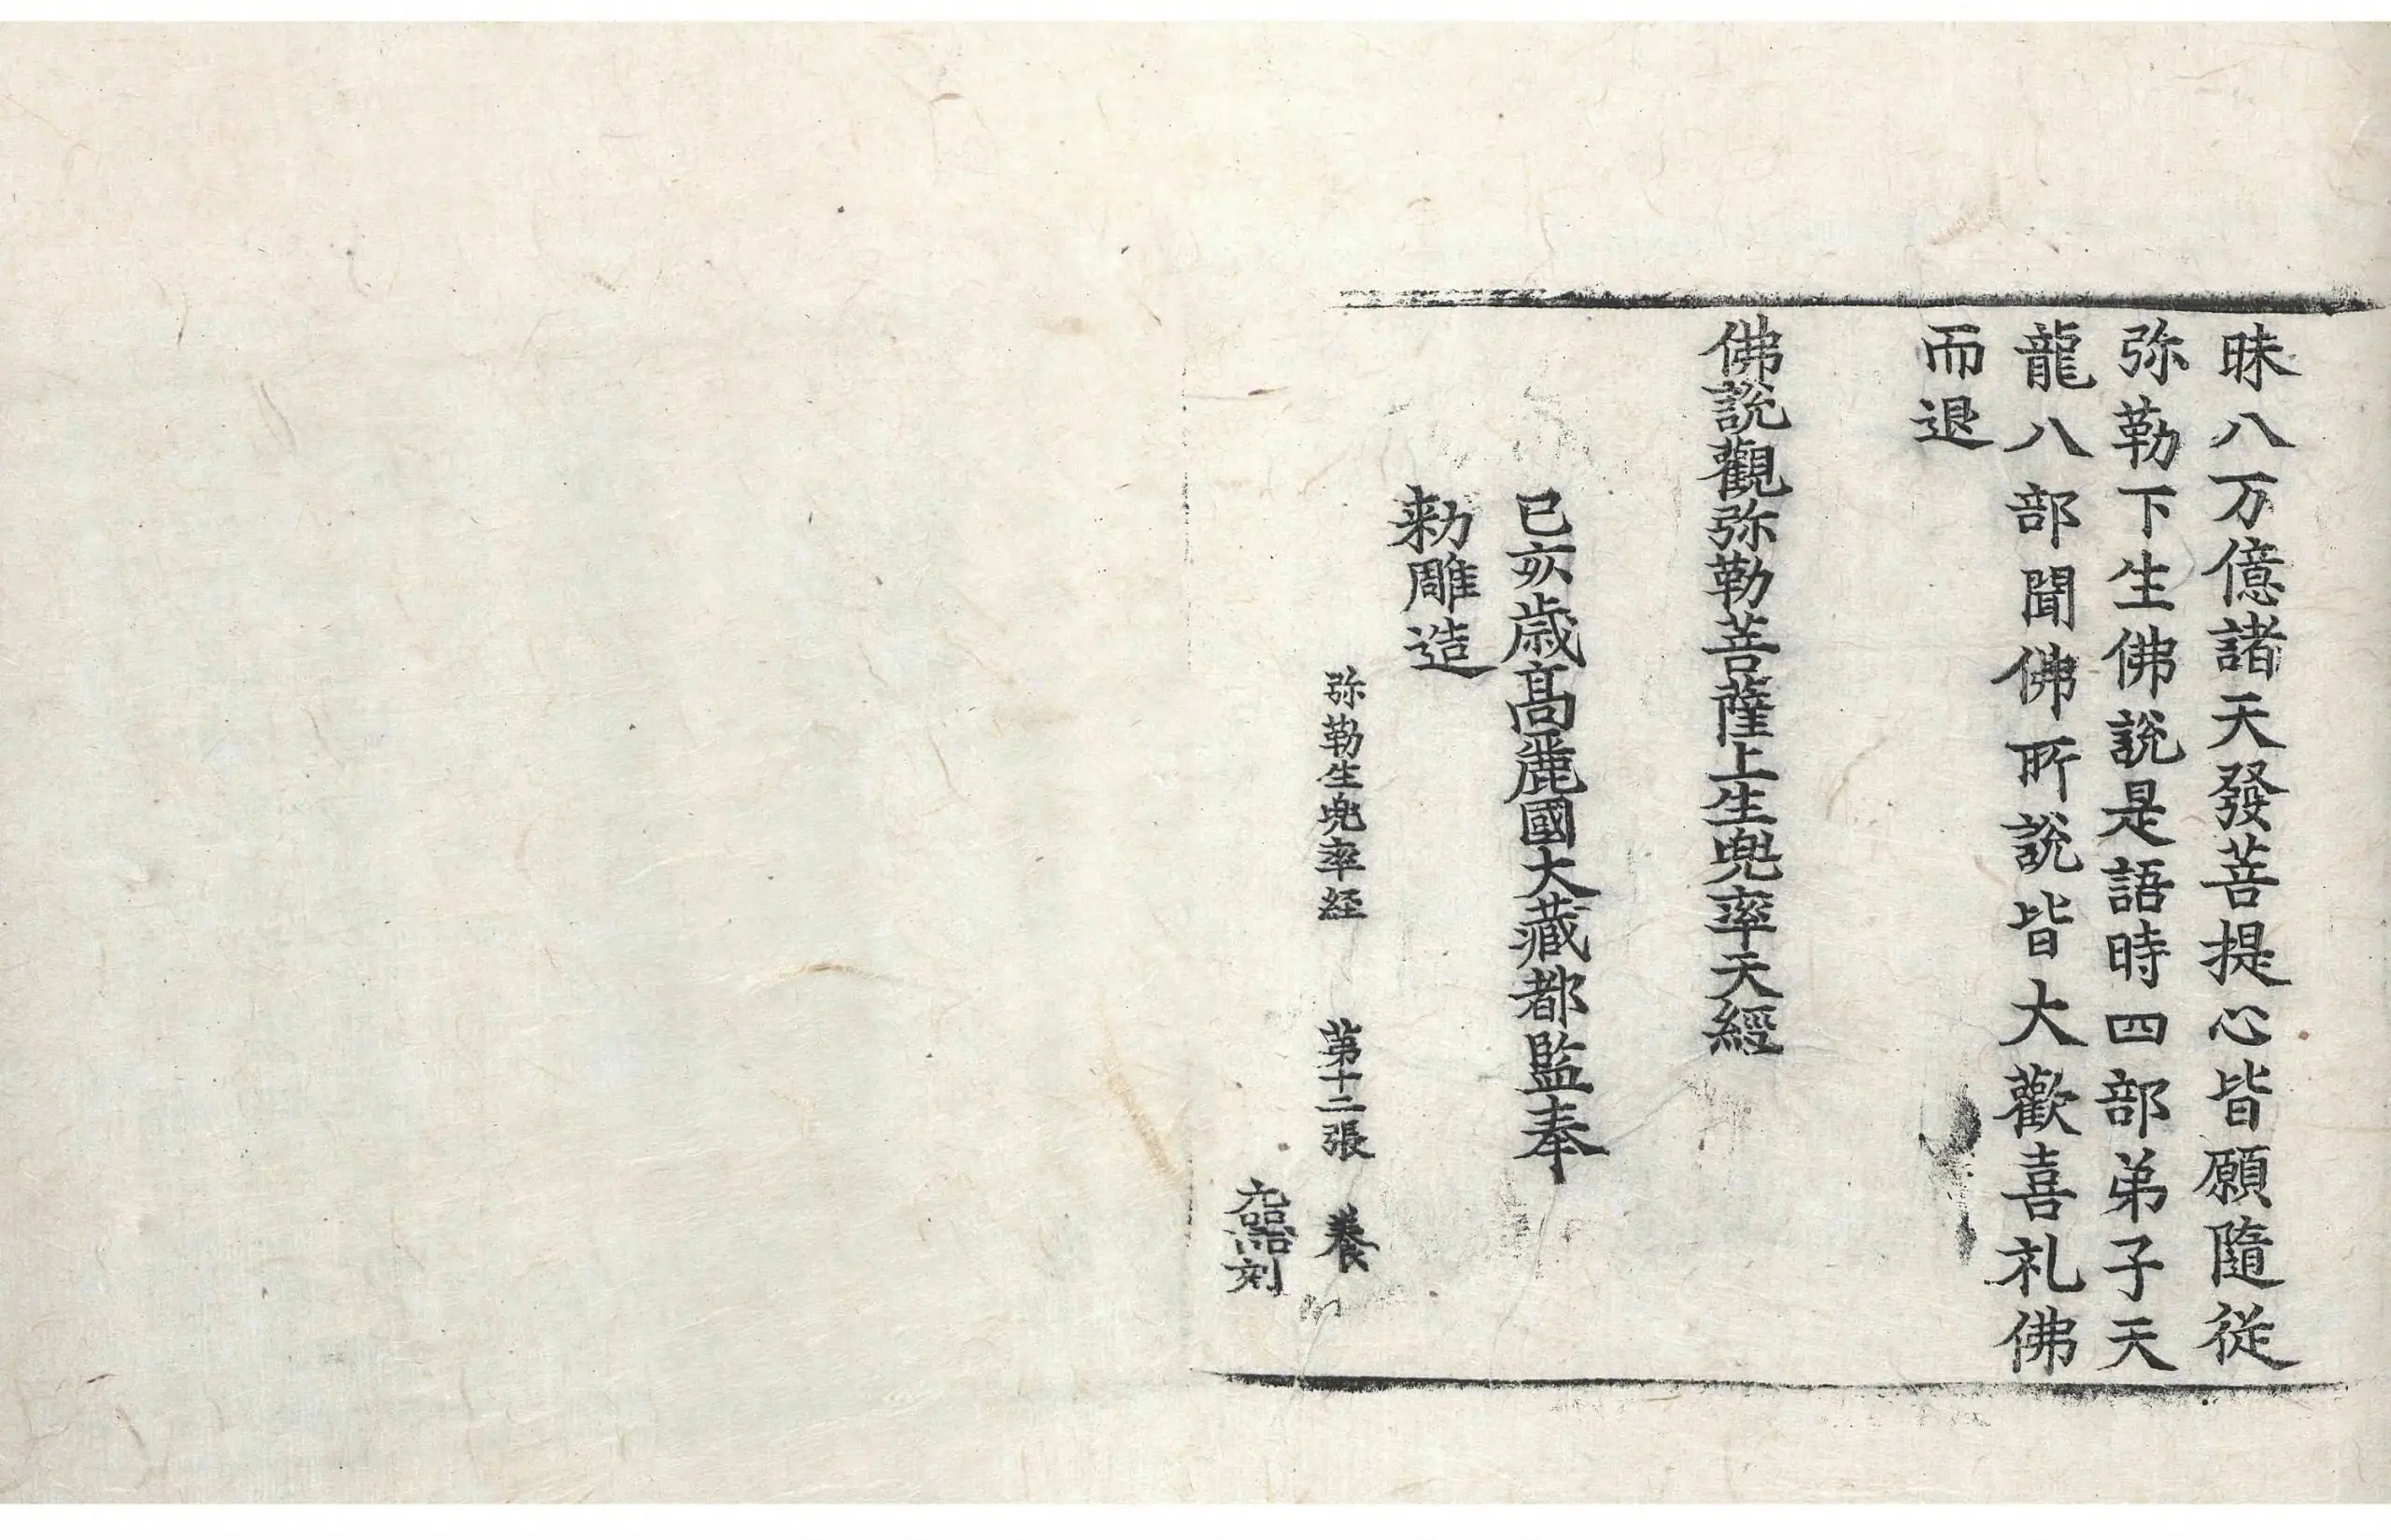 昧八万億諸天發菩提心皆願隨從
弥勒下生佛說是語時四部弟子天
龍八部聞佛所說皆大歡喜礼佛
而退
佛說觀弥勒菩薩上生兜率天經
己亥歳高麗國大藏都監奉
勑雕造
弥勒生兜率経 第十二張 養
刻